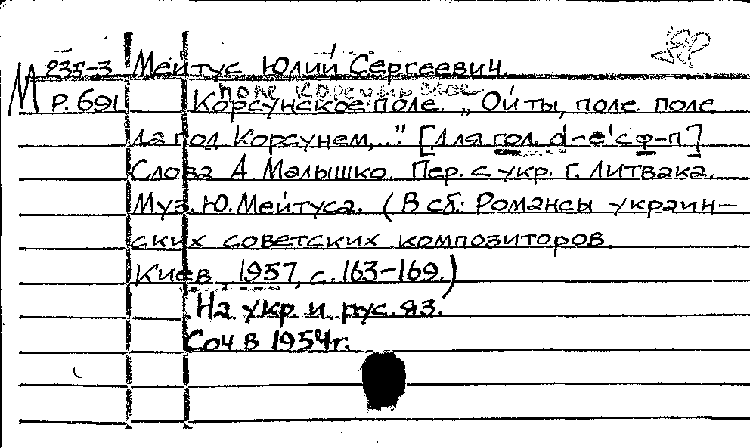 М 235-3 Мейтус Юлий Сергеевич
поле Корсунское
Р.691 Корсунское поле. „Ой ты, поле поле
да под Корсунем,..." [Для гол. d-e' с ф-п.]
Слова А Малышко. Пер. с укр. Г. Литвака.
Муз. Ю. Мейтуса. (В сб.: Романсы украин-
ских советских композиторов.
Киев, 1957, с. 163-169.)
На укр. и рус. яз.
Соч в 1954г.